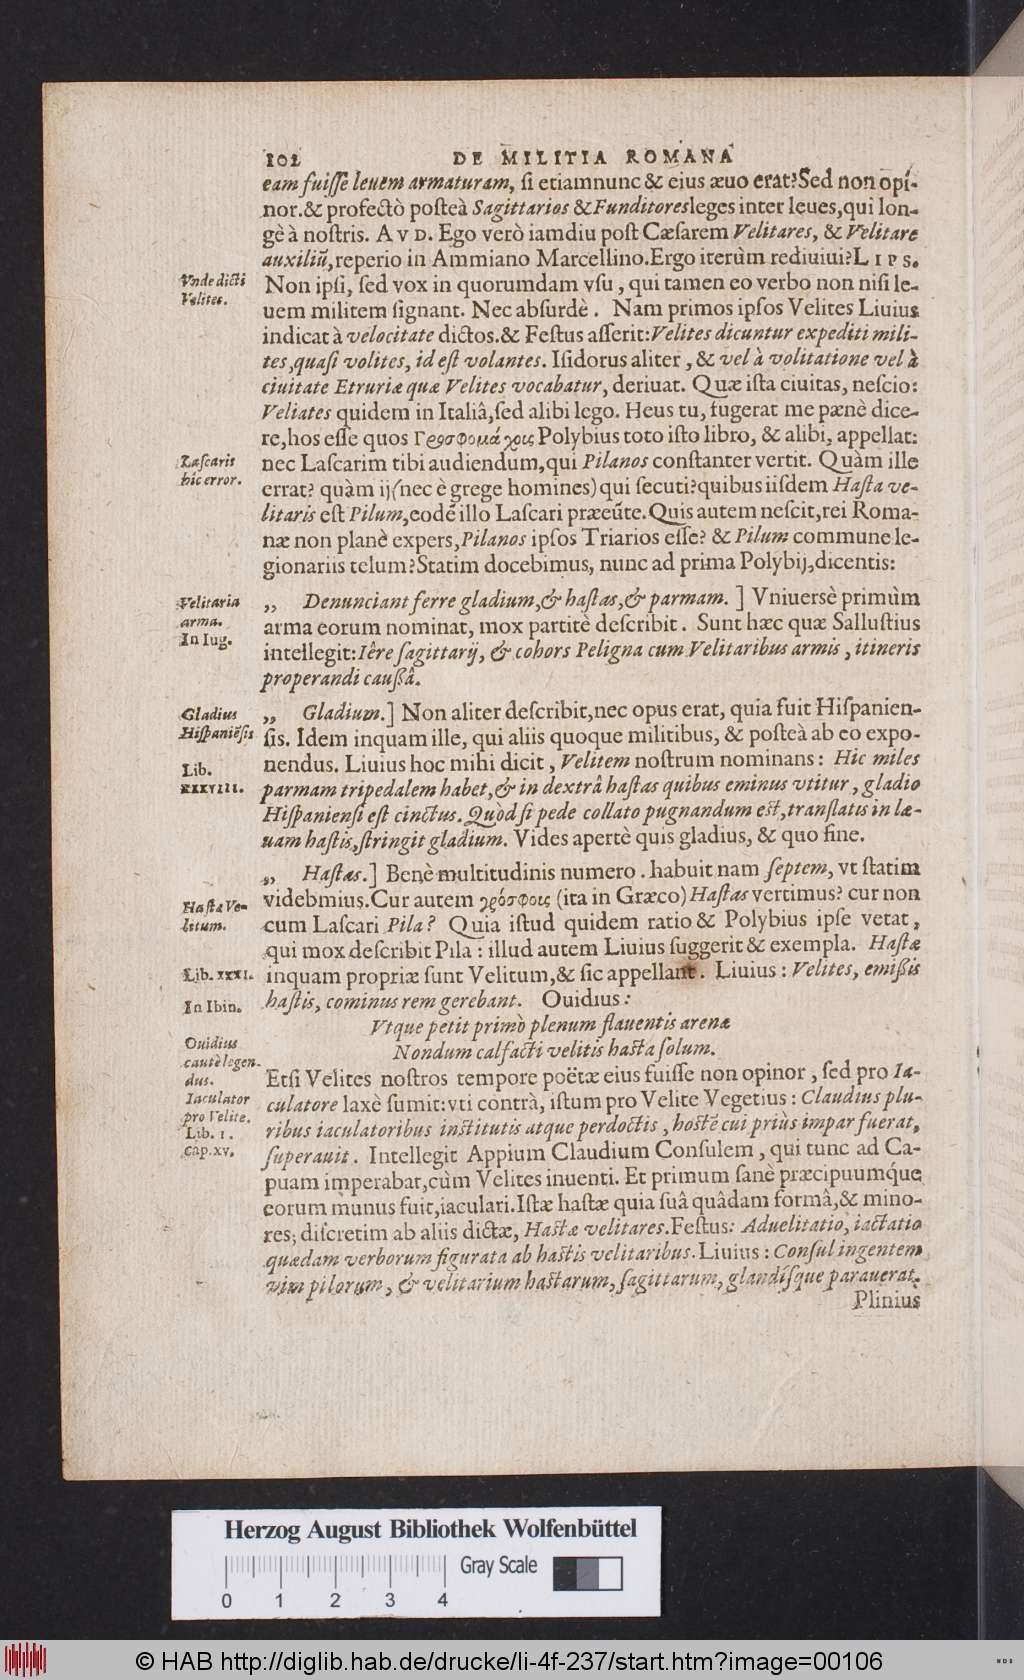 102 DE MILITIA ROMANA
eam fuiſſe leuem armaturam, ſi etiamnunc & eius æuo erat? Sed non opí-
nor. & profectò poſteà Sagittarios & Funditores leges inter leues, qui lon-
gè à noſtris. AVD. Ego verò iamdiu poſt Cæſarem Velitares, & Velitare
auxiliũ, reperio in Ammiano Marcellino. Ergo iterùm rediuiui? LIPS.
Vnde dicti
Velites.
Non ipſi, ſed vox in quorumdam vſu, qui tamen eo verbo non niſi le-
uem militem ſignant. Nec abſurdè. Nam primos ipſos Velites Liuius
indicat à velocitate dictos. & Feſtus aſſerit: Velites dicuntur expediti mili-
tes, quaſi volites, id eſt volantes. Iſidorus aliter, & vel à volitatione vel à
ciuitate Etruriæ quæ Velites vocabatur, deriuat. Quæ iſta ciuitas, neſcio:
Veliates quidem in Italiâ, ſed alibi lego. Heus tu, fugerat me pænè dice-
re, hos eſſe quos Γροσφομάχοις Polybius toto iſto libro, & alibi, appellat:
Laſcaris
hîc error.
nec Laſcarim tibi audiendum, qui Pilanos conſtanter vertit. Quàm ille
errat? quàm ij (nec è grege homines) qui ſecuti? quibus iiſdem Haſta ve-
litaris eſt Pilum, eodẽ illo Laſcari præeũte. Quis autem neſcit, rei Roma-
næ non planè expers, Pilanos ipſos Triarios eſſe? & Pilum commune le-
gionariis telum? Statim docebimus, nunc ad prima Polybij, dicentis:
Velitaria
arma.
In Iug.
„ Denunciant ferre gladium, & haſtas, & parmam. ] Vniuersè primùm
arma eorum nominat, mox partitè deſcribit. Sunt hæc quæ Salluſtius
intellegit: Iêre ſagittarij, & cohors Peligna cum Velitaribus armis, itineris
properandi cauſſâ.
Gladius
Hiſpaniẽſis
Lib.
XXXVIII.
„ Gladium. ] Non aliter deſcribit, nec opus erat, quia fuit Hiſpanien-
ſis. Idem inquam ille, qui aliis quoque militibus, & poſteà ab eo expo-
nendus. Liuius hoc mihi dicit, Velitem noſtrum nominans: Hic miles
parmam tripedalem habet, & in dextrâ haſtas quibus eminus vtitur, gladio
Hiſpanienſi eſt cinctus. Quòd ſi pede collato pugnandum eſt, translatis in læ-
uam haſtis, ſtringit gladium. Vides apertè quis gladius, & quo fine.
„ Haſtas. ] Benè multitudinis numero. habuit nam ſeptem, vt ſtatim
Haſta Ve-
litum.
videbmius. Cur autem γρόσφοις (ita in Græco) Haſtas vertimus? cur non
cum Laſcari Pila? Quia iſtud quidem ratio & Polybius ipſe vetat,
qui mox deſcribit Pila: illud autem Liuius ſuggerit & exempla. Haſtæ
Lib. XXXI.
inquam propriæ ſunt Velitum, & ſic appellant. Liuius: Velites, emiſſis
In Ibin.
haſtis, cominus rem gerebant. Ouidius:
Vtque petit primò plenum flauentis arenæ
Nondum calfacti velitis haſta ſolum.
Ouidius
cautè legen-
dus.
Iaculator
pro Velite.
Lib. I.
Cap. XV.
Etſi Velites noſtros tempore poëtæ eius fuiſſe non opinor, ſed pro Ia-
culatore laxè ſumit: vti contrà, iſtum pro Velite Vegetius: Claudius plu-
ribus iaculatoribus inſtitutis atque perdoctis, hoſtẽ cui priùs impar fuerat,
ſuperauit. Intellegit Appium Claudium Conſulem, qui tunc ad Ca-
puam imperabat, cùm Velites inuenti. Et primum ſanè præcipuumq́ue
eorum munus fuit, iaculari. Iſtæ haſtæ quia ſuâ quâdam formâ, & mino-
res; diſcretim ab aliis dictæ, Haſtæ velitares. Feſtus: Aduelitatio, iactatio
quædam verborum figurata ab haſtis velitaribus. Liuius: Conſul ingentem
vim pilorum, & velitarium haſtarum, ſagittarum, glandíſque parauerat.
Plinius
Herzog August Bibliothek Wolfenbüttel
Gray Scale
0 1 2 3 4
© HAB http://diglib.hab.de/drucke/li-4f-237/start.htm?image=00106